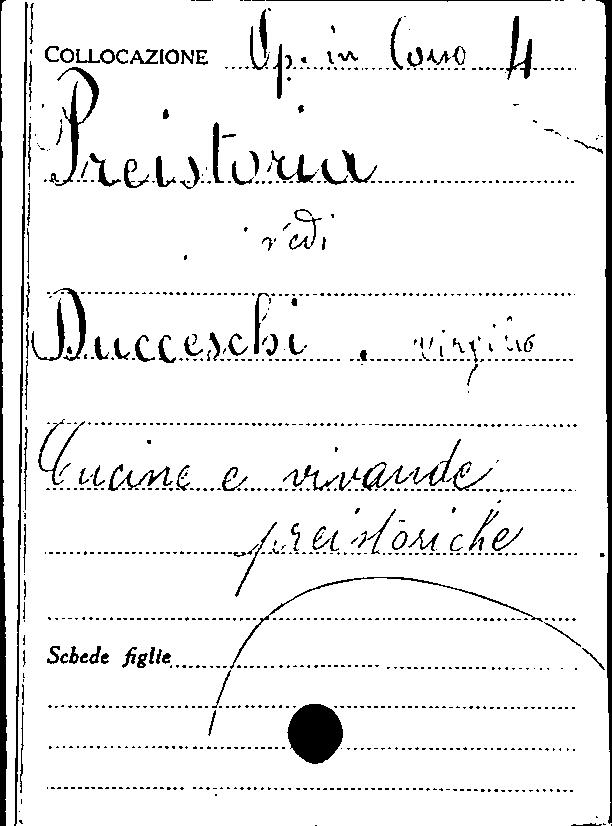 COLLOCAZIONE Op. in Corso 4
Preistoria
vedi
Ducceschi . virgilio
Cucine e vivande
preistoriche
Schede figlie